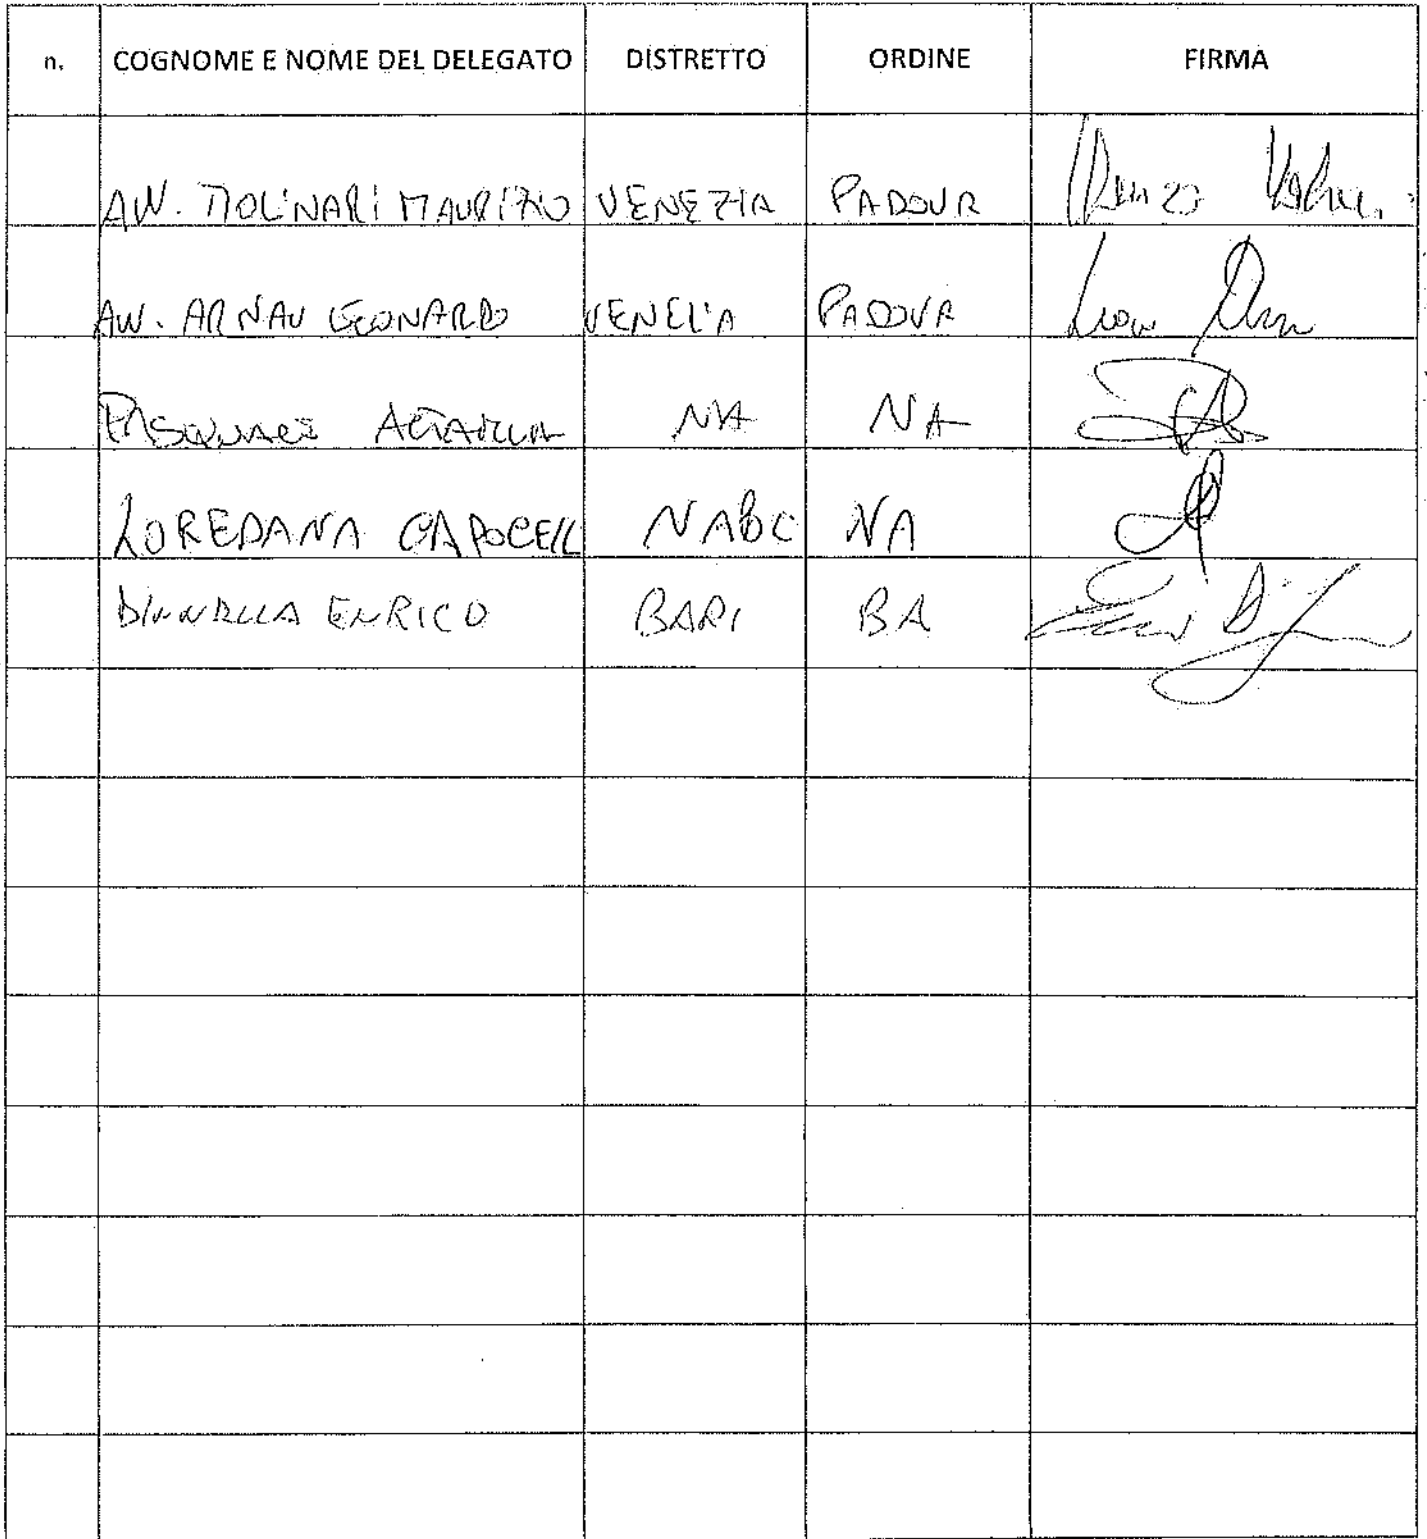 n. COGNOME E NOME DEL DELEGATO DISTRETTO ORDINE FIRMA
AVV. MOLINARI MAURIZIO VENEZIA PADOVA
AVV. ARNAU LEONARDO VENEZIA PADOVA
PASQUALE ALTAMURA NA NA
LOREDANA CAPOCELL NABC NA
DINNELLA ENRICO BARI BA